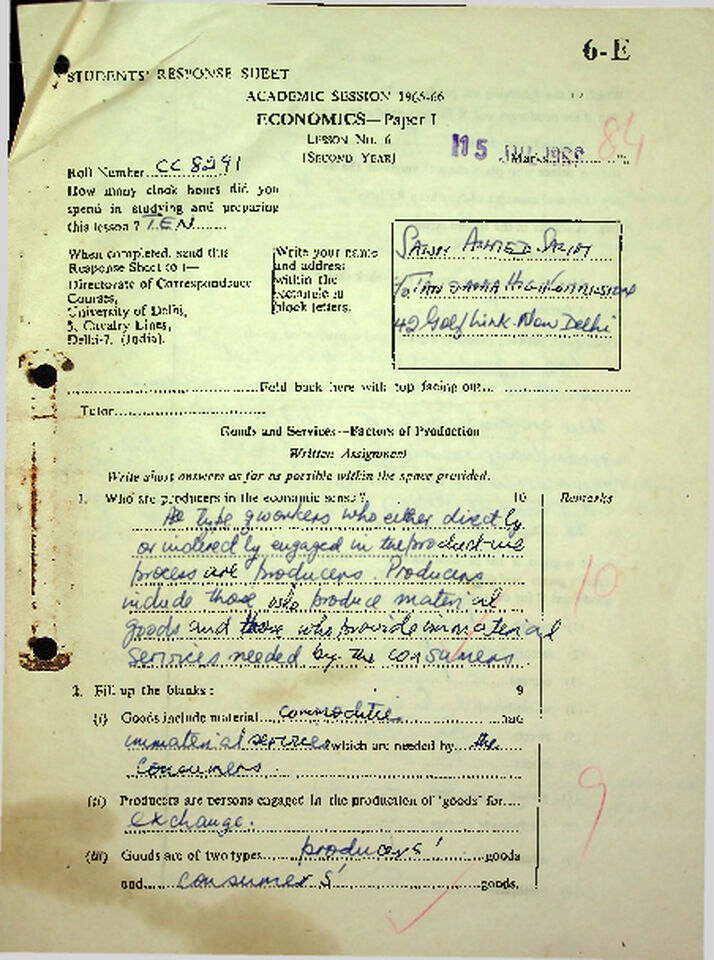 6-E
STUDENTS' RESPONSE SHEET
ACADEMIC SESSION 1965-66
ECONOMICS—Paper I
LESSON NO. 6
(SECOND YEAR)
15
Marks
84
Roll Number CC 8291
How many clock hours did you
spend in studying and preparing
this lesson? TEN
When completed, send this
Response Sheet to :—
Directorate of Correspondence
Courses,
University of Delhi,
5, Cavalry Lines,
Delhi-7. (India).
Write your name
and address
within the
rectangle in
block letters.
AHMED SALIM
HIGH COMMISSION
42 Golf Link. New Delhi
Fold back here with top facing out
Tutor
Goods and Services—Factors of Production
Written Assignment
Write short answers as far as possible within the space provided.
1. Who are producers in the economic sense? 10 Remarks
All type of workers who either directly
or inderectly engaged in the productive
process are producers. Producers
10
include those who produce material
goods and those who provide immaterial
services needed by the consumers
2. Fill up the blanks : 9
(i) Goods include material commodities and
immaterial services which are needed by the
consumers
9
(ii) Producers are persons engaged in the production of 'goods' for
exchange.
(iii) Goods are of two types producers' goods
and consumers' goods.